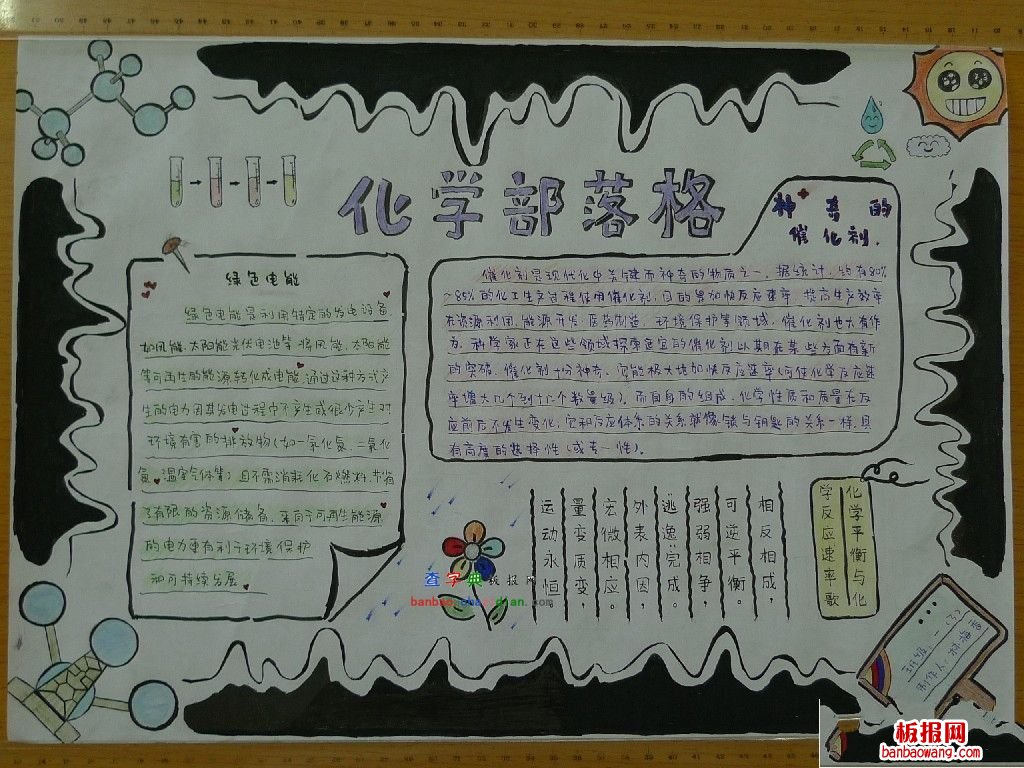 化学部落格
神奇的
催化剂.
绿色电能
绿色电能是利用特定的发电设备
如风能、太阳能光伏电池等,将风能、太阳能
等可再生的能源转化成电能,通过这种方式产
生的电力因其发电过程中不产生或很少产生对
环境有害的排放物(如一氧化氮、二氧化
氮,温室气体等)且不需消耗化石燃料,节省
了有限的资源储备,来自于可再生能源
的电力更有利于环境保护
和可持续发展。
催化剂是现代化中关键而神奇的物质之一。据统计,约有80%
~85%的化工生产过程使用催化剂,目的是加快反应速率,提高生产效率
在资源利用、能源开发、医药制造、环境保护等领域,催化剂也大有作
为,科学家正在这些领域探索适宜的催化剂以期在某些方面有新
的突破。催化剂十分神奇,它能极大地加快反应速率(可使化学反应速
率增大几个到十几个数量级),而自身的组成、化学性质和质量在反
应前后不发生变化,它和反应体系的关系就像锁与钥匙的关系一样,具
有高度的选择性(或专一性)。
化学平衡与化
学反应速率歌
相反相成,
可逆平衡。
强弱相争,
逃逸完成。
外表内因,
宏微相应。
量变质变,
运动永恒
查字典板报网
banbao.chazidian.com
班级:一(3)
制作人:
板报网
banbaowang.com